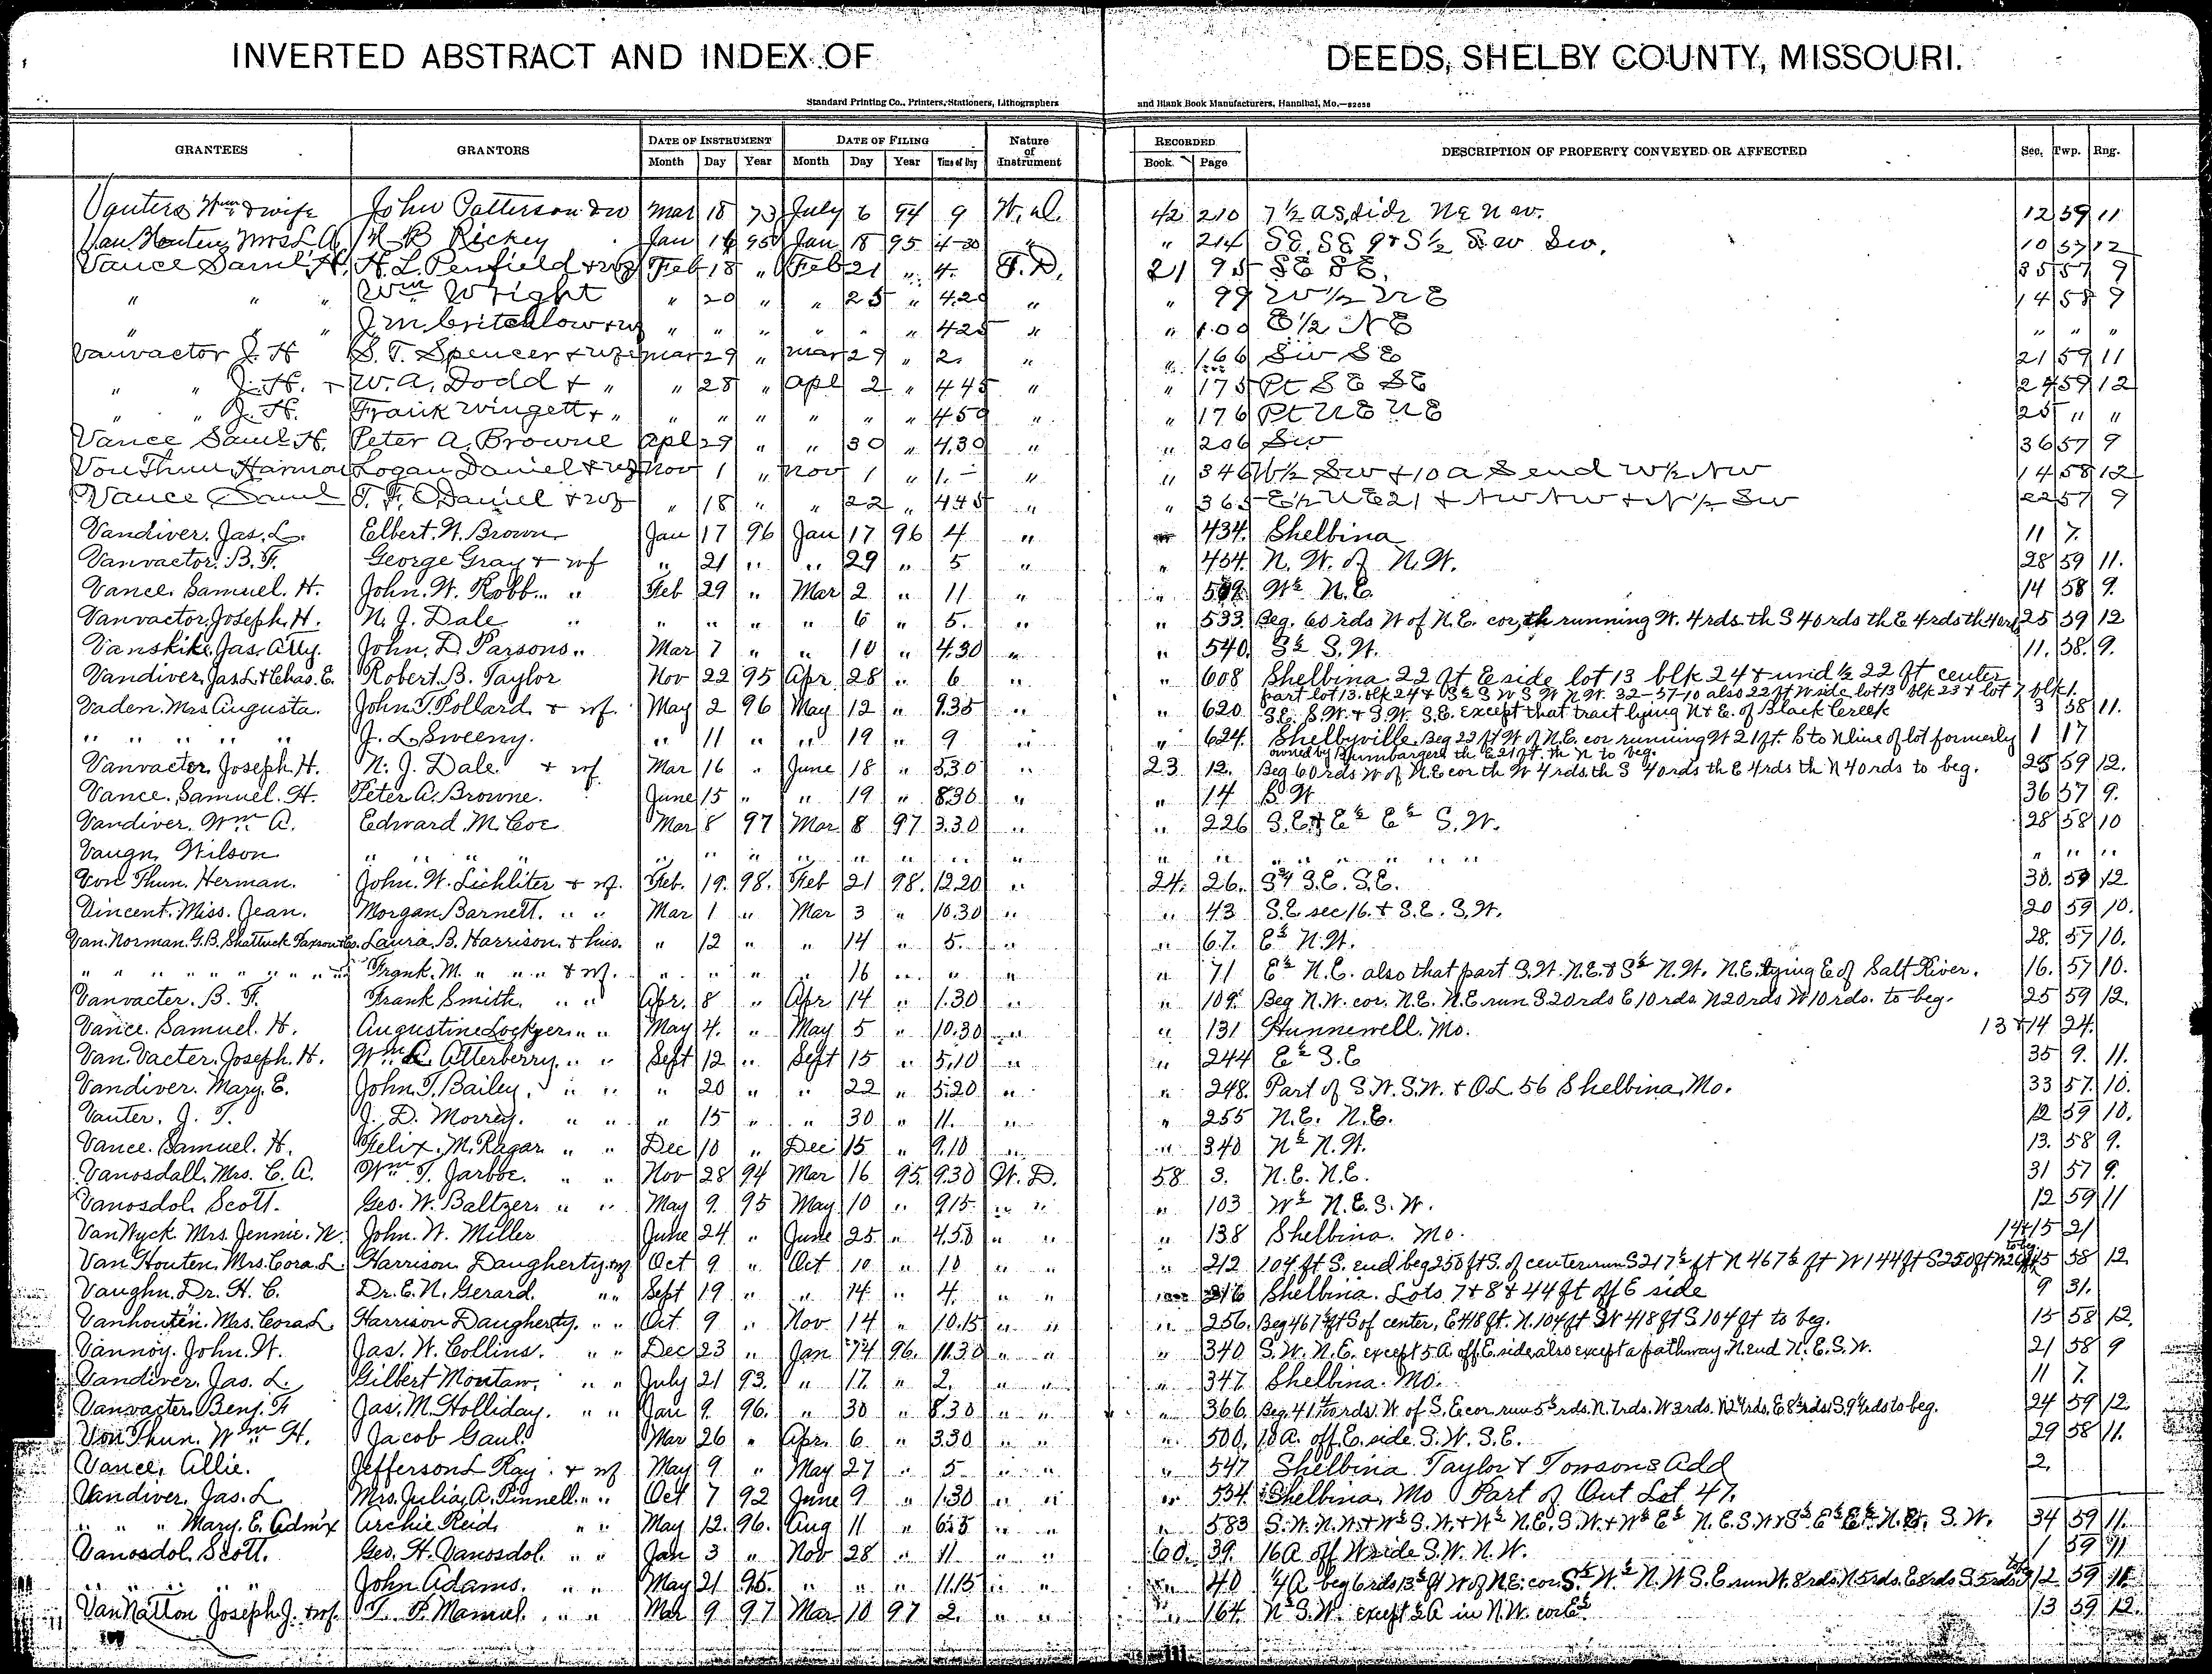 INVERTED ABSTRACT AND INDEX OF DEEDS, SHELBY COUNTY, MISSOURI.
Standard Printing Co., Printers, Stationers, Lithographers and Blank Book Manufacturers, Hannibal, Mo.—82658
GRANTEES GRANTORS DATE OF INSTRUMENT DATE OF FILING Nature of Instrument RECORDED DESCRIPTION OF PROPERTY CONVEYED OR AFFECTED Sec. Twp. Rng.
Month Day Year Month Day Year Time of Day Book Page
Wm & wife John Patterson & w Mar 18 73 July 6 94 9 W. d. 42 210 7 1/2 a s side Ne Nw. 12 59 11
Van Houten, Mrs L A B Rickey Jan 95 Jan 18 95 4-30 " 214 10 57 12
Vance Saml H. H. L. Penfield & wf Feb 18 " Feb 21 " 4. 21 95 SE SE. 35 57 9
" " " Wm Wright " 20 " " 25 " 4.20 " " 99 W 1/2 NE 14 58 9
" " " J. M. Critchlow & wf " " " " " " 425 " " 100 E 1/2 NE " " "
Vanvactor J. H S. T. Spencer & wf Mar 29 " Mar 29 " 2. " " 166 SW SE 21 59 11
" " J. H. W. A. Dodd & " " 28 " Apl 2 " 445 " " 175 Pt SE SE 24 59 12
" " J. H. Frank Wingett & " " " " " " " 450 " " 176 Pt NE NE 25 " "
Vance Saml H. Peter A. Browne Apl 29 " " 30 " 4.30 " " 206 SW 36 57 9
Von Thun Harmon Logan Daniel & wf Nov 1 " Nov 1 " 1.- " " 346 W 1/2 SW & 10 a S end W 1/2 NW 14 58 12
Vance Saml T. F. O Daniel & wf " 18 " " 22 " 445 " " 365 E 1/2 NE 21 & NW NW & N 1/2 SW 22 57 9
Vandiver. Jas. L. Elbert. N. Brown Jan 17 96 Jan 17 96 4 " 434. Shelbina 11 7.
Vanvactor. B. F. George Gray & wf " 21 " " 29 " 5 " " 454. N. W. of N. W. 28 59 11.
Vance. Samuel. H. John. W. Robb " Feb 29 " Mar 2 " 11 " " W½ N. E. 14 58 9.
Vanvactor. Joseph. H. N. J. Dale " " " " " 6 " 5. " " 533. Beg. 60 rds W of N. E. cor, th running W. 4 rds. th S 40 rds th E 4 rds th 25 59 12
Vanskike. Jas. Atty. John. D. Parsons " Mar 7 " " 10 " 4.30 " " 540. S½ S. W. 11. 58. 9.
Vandiver. Jas L & Chas. E. Robert. B. Taylor Nov 22 95 Apr. 28 " 6 " " 608 Shelbina. 22 ft E side lot 13 blk 24 & und ½ 22 ft center
part lot 13. blk 24 & S½ S W S W N W. 32-57-10 also 22 ft W side lot 13 blk 23 & lot 7 blk 1.
Vaden. Mrs Augusta. John. T. Pollard & wf. May 2 96 May 12 " 9.35 " " 620 S. E. S. W. & S. W. S. E. Except that tract lying N & E. of Black Creek 3 58 11.
" " " " J. L. Sweeny. " 11 " " 19 " 9 " " 624. Shelbyville. Beg 22 ft W of N. E. cor running W 21 ft. S to N line of lot formerly 1 17
owned by Bumbargers th E 21 ft. th N to beg.
Vanvacter. Joseph. H. N. J. Dale & wf Mar 16 " June 18 " 5.30 " 23 12. Beg 60 rds W of N E cor th W 4 rds. th S 40 rds th E 4 rds th N 40 rds to beg. 25 59 12.
Vance. Samuel. H. Peter A. Browne. June 15 " " 19 " 8.30 " " 14 S. W 36 57 9.
Vandiver. Wm A. Edward. M. Coe Mar 8 97 Mar 8 97 3.30 " " 226 S. E. & E½ E½ S. W. 28 58 10
Vaugn. Wilson " " " " " " " " " " " " " " " " " " " "
Von Thun. Herman. John. W. Lichliter & wf. Feb. 19. 98. Feb 21 98. 12.20 " 24. 26. S. E. S. E. 30. 59 12
Vincent. Miss. Jean. Morgan Barnett. " " Mar 1 " Mar 3 " 10.30 " " 43 S. E. sec 16. & S. E. S. W. 20 59 10.
Van. Norman. G. B. Shattuck Paxson & Co. Laura. B. Harrison. & hus. " 12 " " 14 " 5. " " 67. E½ N. W. 28. 57 10.
" " " " " " Frank. M. " " & wf. " " " " 16 " " " " 71 E½ N. E. also that part S. W. N. E. & S½ N. W. N. E. lying E of Salt River. 16. 57 10.
Vanvacter. B. F. Frank Smith. " " Apr. 8 " Apr 14 " 1.30 " " 109. Beg N. W. cor. N. E. N. E. run S 20 rds E 10 rds. N 20 rds W 10 rds. to beg. 25 59 12.
Vance. Samuel. H. Augustine Lockyer " " May 4. " May 5 " 10.30 " " 131 Hunnewell. Mo. 13 & 14 24.
Van. Vacter. Joseph. H. Wm. Atterberry. " " Sept 12 " Sept 15 " 5.10 " " 244 E½ S. E 35 9. 11.
Vandiver. Mary. E. John. T. Bailey. " " " 20 " " 22 " 5.20 " " 248. Part of S. W. S. W. & O L. 56 Shelbina. Mo. 33 57. 10.
Vauter. J. T. J. D. Morrey. " " " 15 " " 30 " 11. " " 255 N. E. N. E. 12 59 10.
Vance. Samuel. H. Felix. M. Ragar " " Dec 10 " Dec 15 " 9.10 " " 340 N½ N. W. 13. 58 9.
Vanosdall. Mrs. C. A. Wm T. Jarboe. " " Nov 28 94 Mar 16 95 9.30 W. D. 58 3. N. E. N. E. 31 57 9.
Vanosdol. Scott. Geo. W. Baltzer " " May 9. 95 May 10 " 9 15 " " " 103 W½ N. E. S. W. 12 59 11
Van Wyck. Mrs. Jennie. N. John. W. Miller June 24 " June 25 " 4.50 " " " 138 Shelbina. Mo. 14 & 15 21
Van Houten. Mrs. Cora. L. Harrison Daugherty & wf Oct 9 " Oct 10 " 10 " " " 212 104 ft S. end beg 250 ft S. of center run S 217½ ft N 467½ ft W 144 ft S 250 ft to beg. 15 58 12
Vaughn. Dr. H. C. Dr. E. N. Gerard. " " Sept 19 " " 14 " 4. " " 216 Shelbina. Lots 7 & 8 & 44 ft off E side 9 31.
Vanhouten. Mrs. Cora L. Harrison Daugherty. " " Oct 9 " Nov. 14 " 10.15 " " " 256. Beg 467½ ft S of center, E 418 ft. N. 104 ft W 418 ft S. 104 ft to beg. 15 58 12.
Vannoy. John. W. Jas. W. Collins. " " Dec 23 " Jan 14 96. 11.30 " " " 340 S. W. N. E. except 5 A off E. side also except a pathway N. end N. E. S. W. 21 58 9
Vandiver. Jas. L. Gilbert Montaw. " " July 21 93. " 17. " 2. " " " 347. Shelbina. Mo. 11 7.
Vanvacter. Benj. F Jas. M. Holliday. " " Jan 9. 96. " 30 " 8.30 " " " 366 Beg. 41 rds. W of S. E. cor run rds. N. 7 rds. W 3 rds. to beg. 24 59 12.
Von Thun. Wm H. Jacob Gaul. Mar 26 " Apr. 6 " 3.30 " " " 500. 10 A. off E. side. S. W. S. E. 29 58 11.
Vance. Allie. Jefferson L Ray. & wf May 9 " May 27 " 5 " " " 547 Shelbina Taylor & Towsons Add 2.
Vandiver. Jas. L Mrs. Julia. A. Pinnell. " " Oct 7 92 June 9 " 1.30 " " " 554. Shelbina. Mo Part of Out Lot 47.
" " " Mary. E. Admx Archie Reid. " " May 12. 96. Aug 11 " " " " 583 S. W. N. W. & W½ S. W. & W½ N. E. S. W. & W½ E½ N. E. S. W & S. W. 34 59 11.
Vanosdol. Scott. Geo. H. Vanosdol. " " Jan 3 " Nov 28 " 11 " " 60. 39. 16 A off W side S. W. N. W. 1 59 11
" " " " John Adams. " " May 21 95. " " " 11.15 " " " 40 ¼ A beg 6 rds 13½ ft W of N E. cor. W½ N. W S. E run W. 8 rds. N 5 rds. E 8 rds S. 5 rds to beg 12 59 11.
VanNatton Joseph J. & wf. T. P. Manuel. " " Mar 9 97 Mar 10 97 2. " " " 164. N½ S. W. except ½ A in N. W. cor 13 59 12.